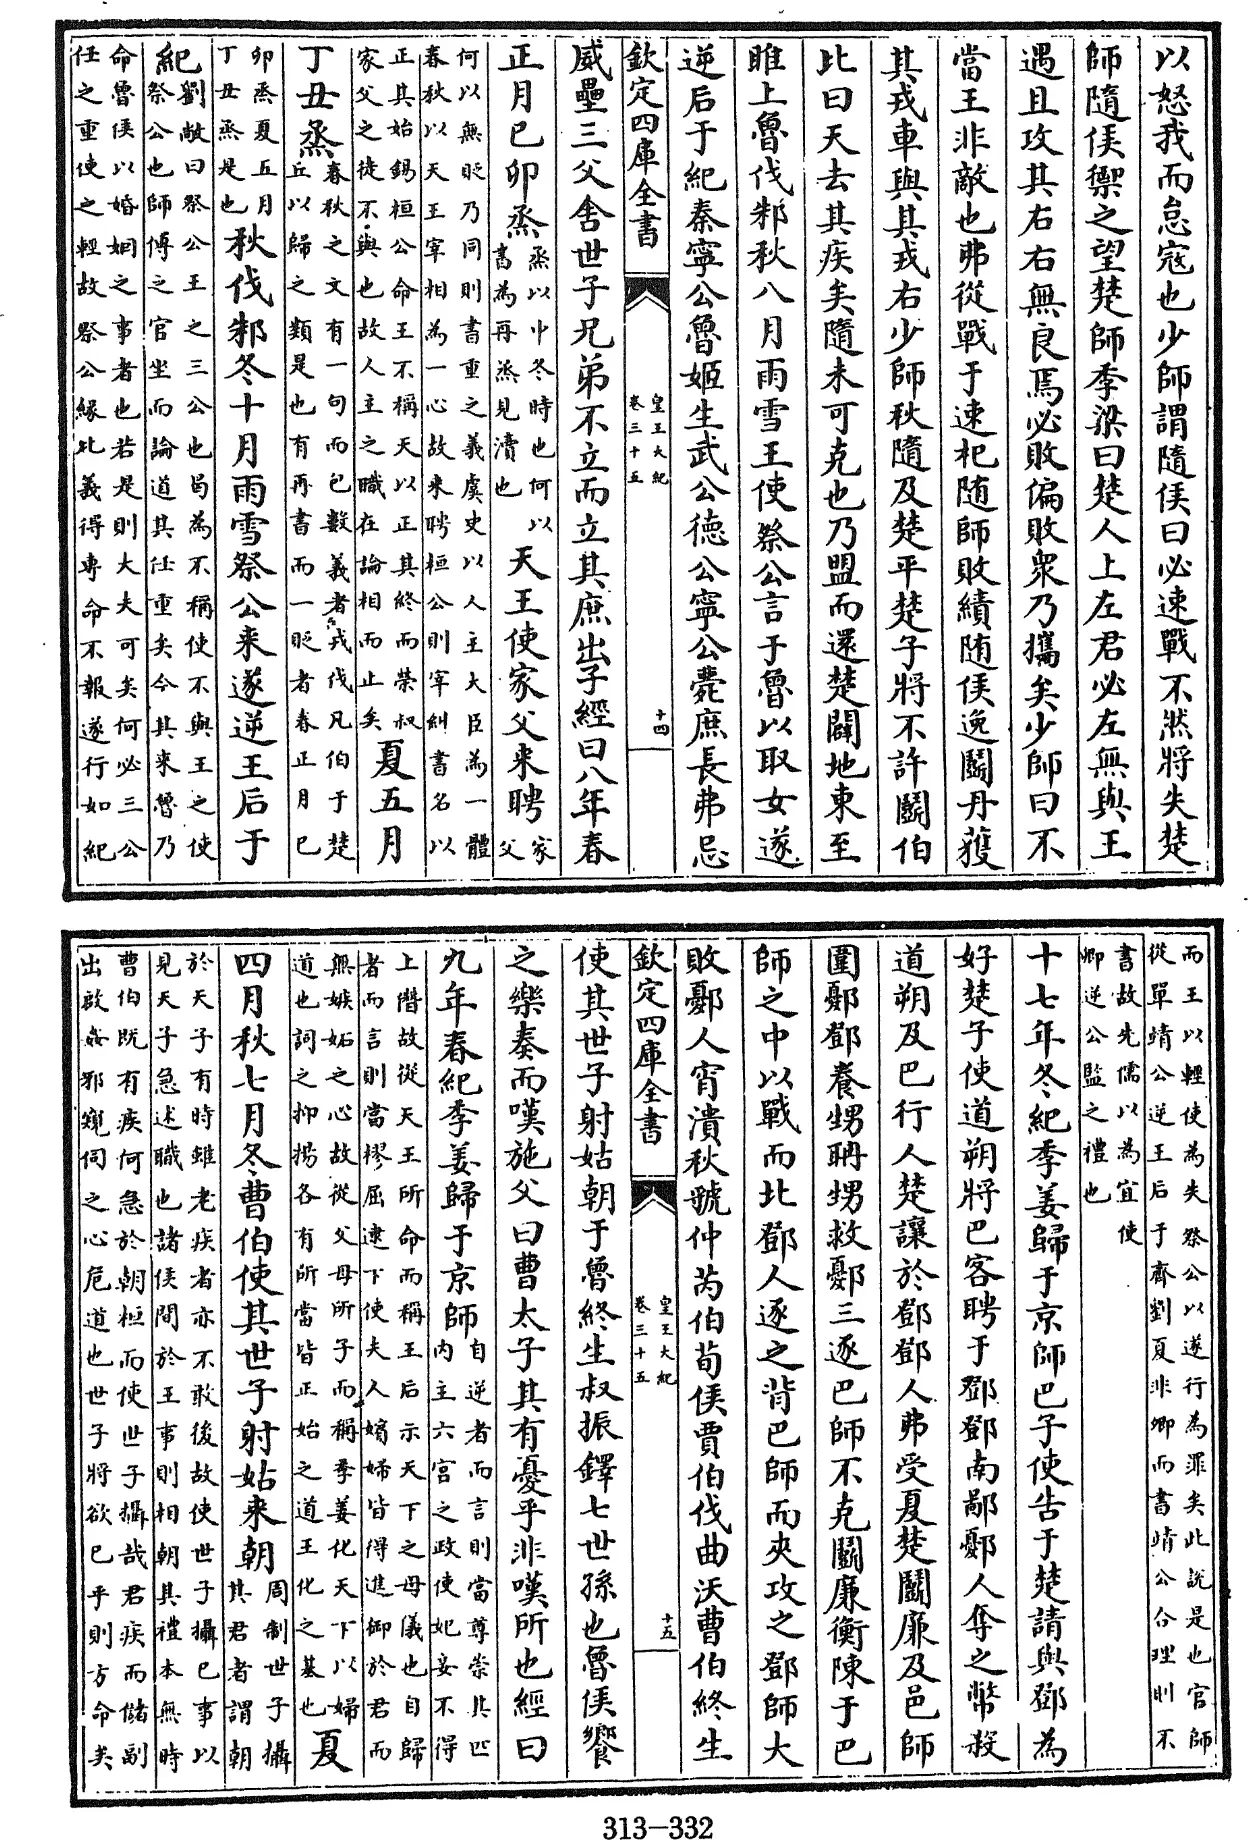 以怒我而怠寇也少師謂隨侯曰必速戰不然將失楚
師隨侯禦之望楚師季梁曰楚人上左君必左無與王
遇且攻其右右無良焉必敗偏敗衆乃攜矣少師曰不
當王非敵也弗從戰于速杞随師敗績随侯逸鬭丹獲
其戎車與其戎右少師秋隨及楚平楚子將不許鬭伯
比曰天去其疾矣隨未可克也乃盟而還楚闢地東至
睢上魯伐邾秋八月雨雪王使祭公言于魯以取女遂
逆后于紀秦寧公魯姬生武公德公寧公薨庶長弗忌
欽定四庫全書
皇王大紀
卷三十五
十四
威壘三父舍世子兄弟不立而立其庶出子經曰八年春
正月已卯烝
烝以中冬時也何以
書為再烝見瀆也
天王使家父来聘
家
父
何以無貶乃同則書重之義虞史以人主大臣為一體
春秋以天王宰相為一心故来聘桓公則宰糾書名以
正其始錫桓公命王不稱天以正其終而榮叔
家父之徒不與也故人主之職在論相而止矣
夏五月
丁丑烝
春秋之文有一句而包數義者戎伐凡伯于楚
丘以歸之類是也有再書而一貶者春正月已
卯烝夏五月
丁丑烝是也
秋伐邾冬十月雨雪祭公来遂逆王后于
紀
劉敞曰祭公王之三公也曷為不稱使不與王之使
祭公也師傅之官坐而論道其任重矣今其来魯乃
命魯侯以婚姻之事者也若是則大夫可矣何必三公
任之重使之輕故祭公緣此義得専命不報遂行如紀
而王以輕使為失祭公以遂行為罪矣此説是也官師
從單靖公逆王后于齊劉夏非卿而書靖公合理則不
書故先儒以為宜使
卿逆公監之禮也
十七年冬紀季姜歸于京師巴子使告于楚請與鄧為
好楚子使道朔將巴客聘于鄧鄧南鄙鄾人奪之幣殺
道朔及巴行人楚讓於鄧鄧人弗受夏楚鬭廉及邑師
圍鄾鄧養甥聃甥救鄾三逐巴師不克鬭廉衡陳于巴
師之中以戰而北鄧人逐之背巴師而夾攻之鄧師大
敗鄾人宵潰秋虢仲芮伯荀侯賈伯伐曲沃曹伯終生
欽定四庫全書
皇王大紀
卷三十五
十五
使其世子射姑朝于魯終生叔振鐸七世孫也魯侯饗
之樂奏而嘆施父曰曹太子其有憂乎非嘆所也經曰
九年春紀季姜歸于京師
自逆者而言則當尊崇其匹
内主六宮之政使妃妾不得
上僭故從天王所命而稱王后示天下之母儀也自歸
者而言則當樛屈逮下使夫人嬪婦皆得進御於君而
無嫉妬之心故從父母所子而稱季姜化天下以婦
道也詞之抑揚各有所當皆正始之道王化之基也
夏
四月秋七月冬曹伯使其世子射姑来朝
周制世子攝
其君者謂朝
於天子有時雖老疾者亦不敢後故使世子攝已事以
見天子急述職也諸侯間於王事則相朝其禮本無時
曹伯既有疾何急於朝桓而使世子攝哉君疾而儲副
出啟姦邪窺伺之心危道也世子將欲已乎則方命矣
313-332